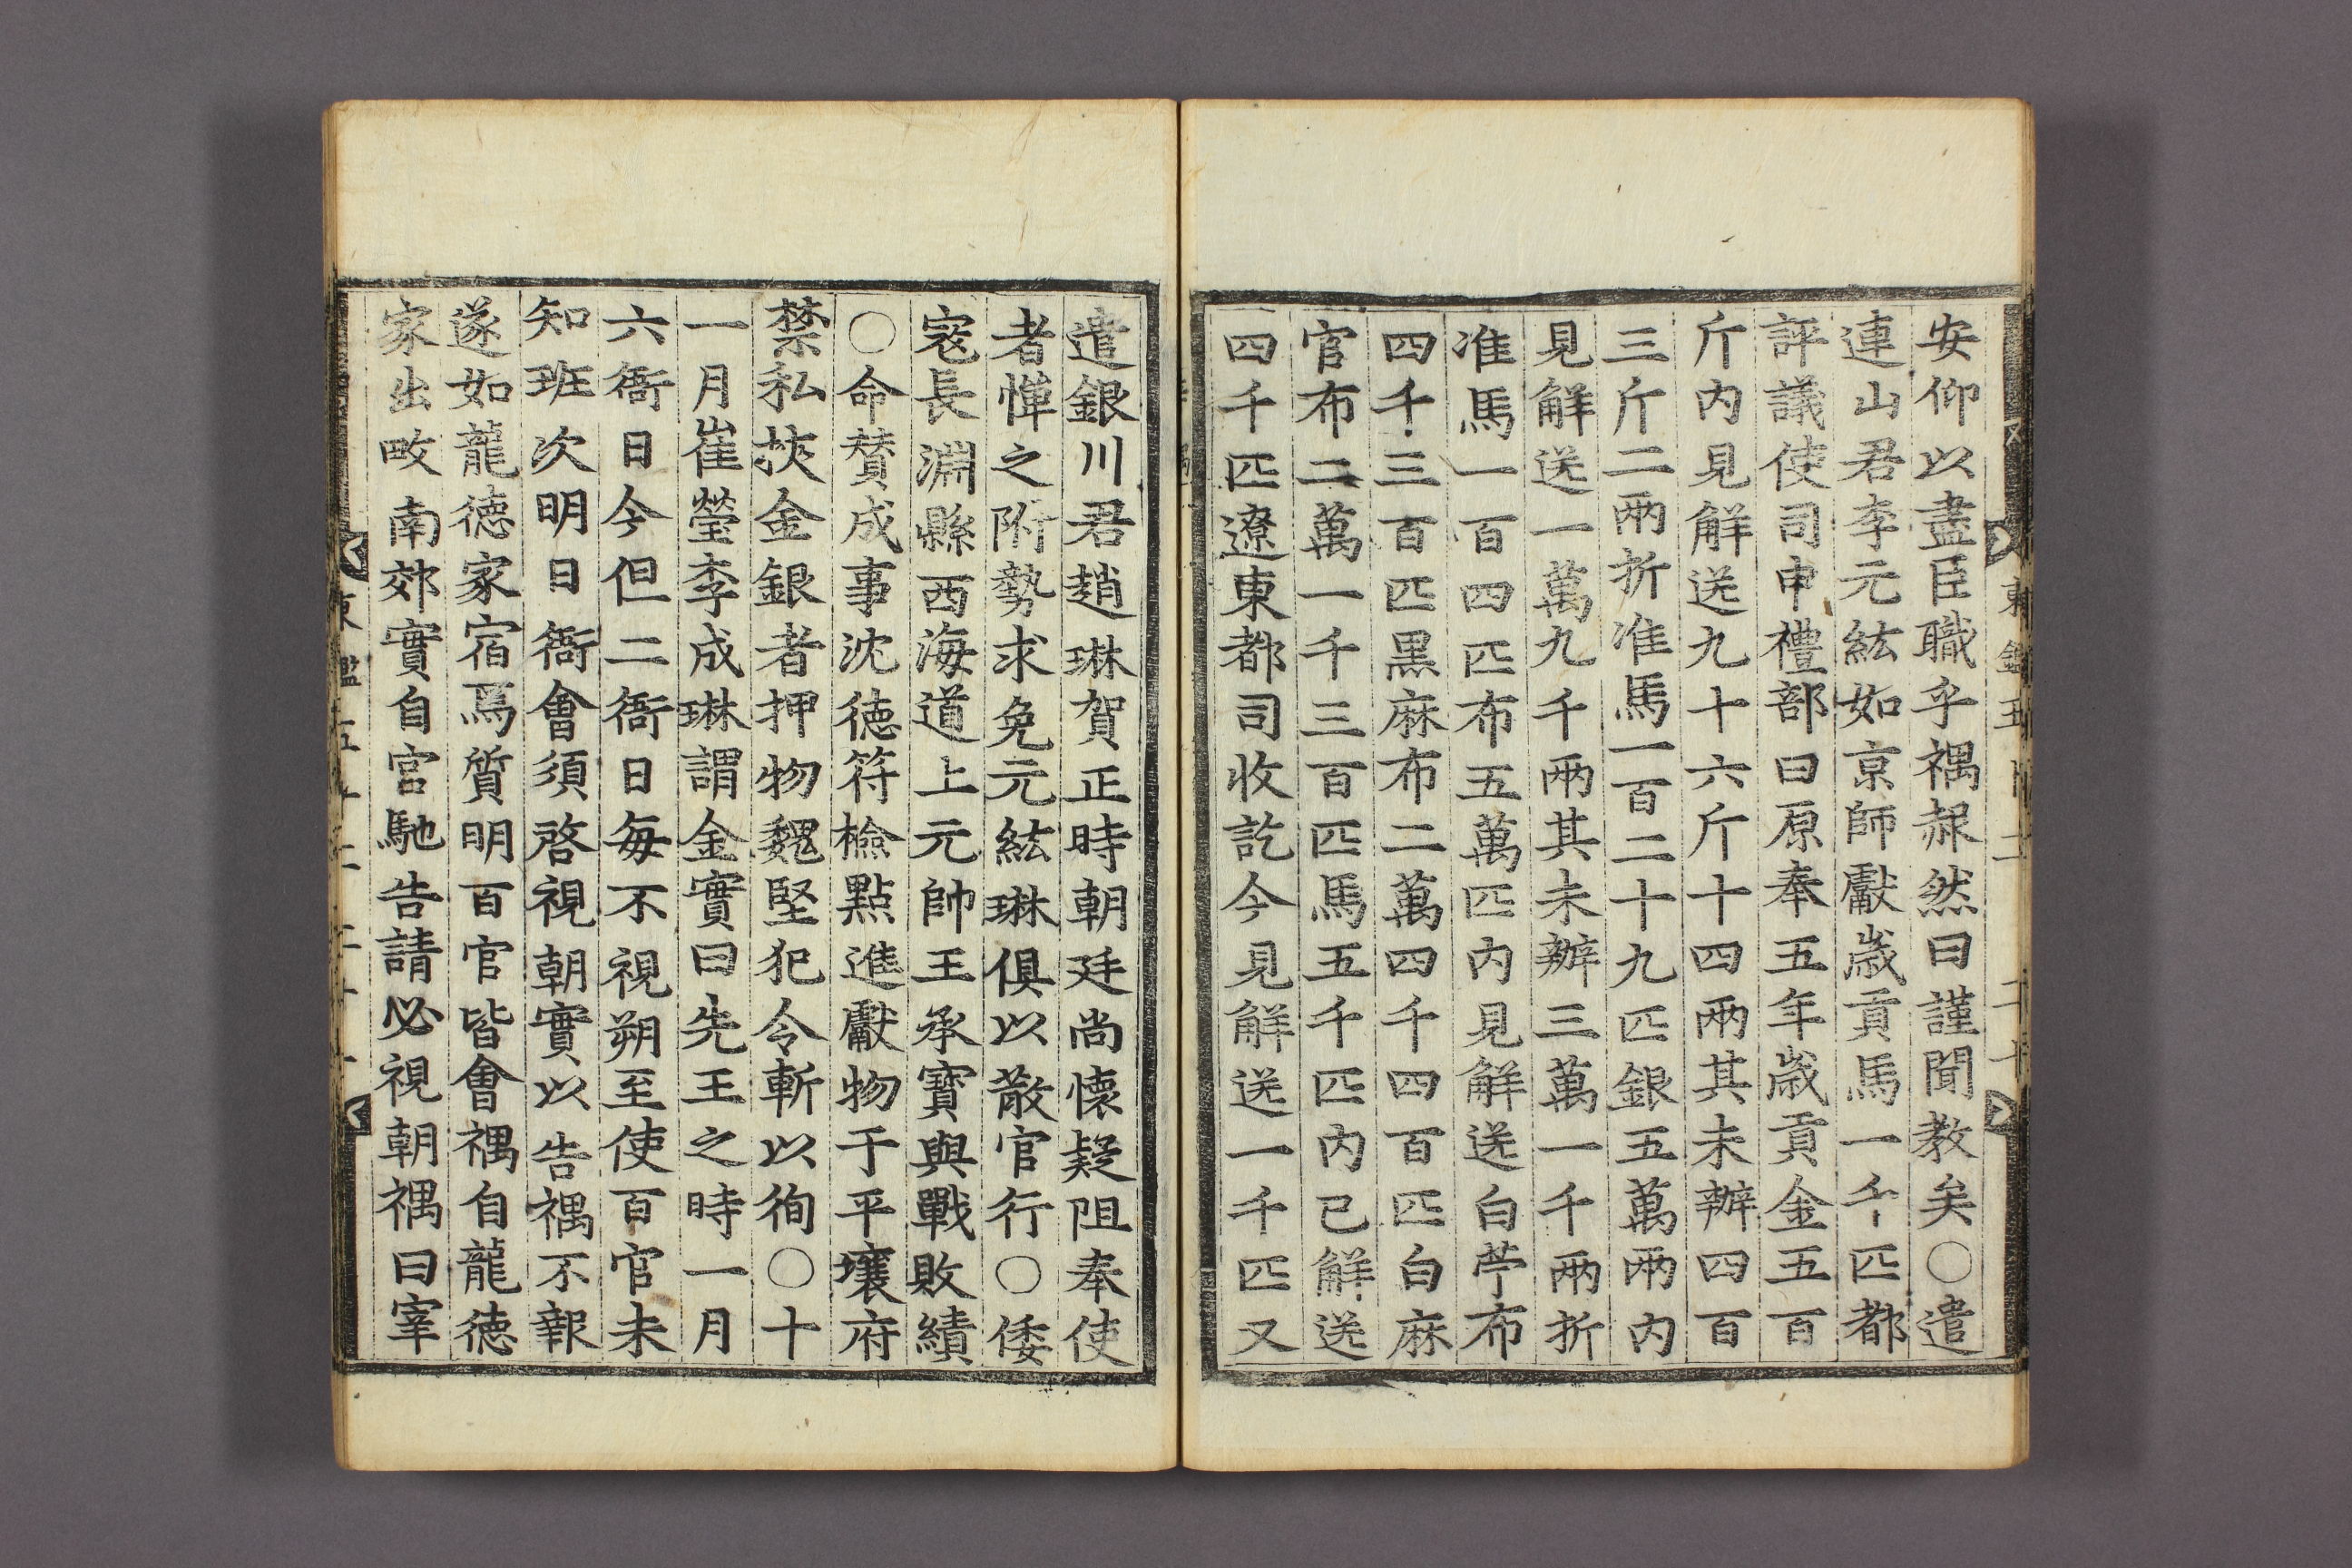 安仰以盡臣職乎禑赧然曰謹聞教矣○遣
連山君李元紘如京師獻歲貢馬一千匹都
評議使司申禮部曰原奉五年歲貢金五百
斤內見解送九十六斤十四兩其未辦四百
三斤二兩折准馬一百二十九匹銀五萬兩內
見解送一萬九千兩其未辦三萬一千兩折
准馬一百四匹布五萬匹內見解送白苧布
四千三百匹黑麻布二萬四千四百匹白麻
官布二萬一千三百匹馬五千匹內已解送
四千匹遼東都司收訖今見解送一千匹又
遣銀川君趙琳賀正時朝廷尚懷疑阻奉使
者憚之附勢求免元紘琳俱以散官行○倭
寇長淵縣西海道上元帥王承寶與戰敗績
○命贊成事沈德符檢點進獻物于平壤府
禁私挾金銀者押物魏堅犯令斬以徇○十
一月崔瑩李成琳謂金實曰先王之時一月
六衙日今但二衙日每不視朔至使百官未
知班次明日衙會須啓視朝實以告禑不報
遂如龍德家宿焉質明百官皆會禑自龍德
家出畋南郊實自宮馳告請必視朝禑曰宰